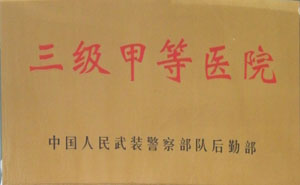 三级甲等医院
中国人民武装警察部队后勤部